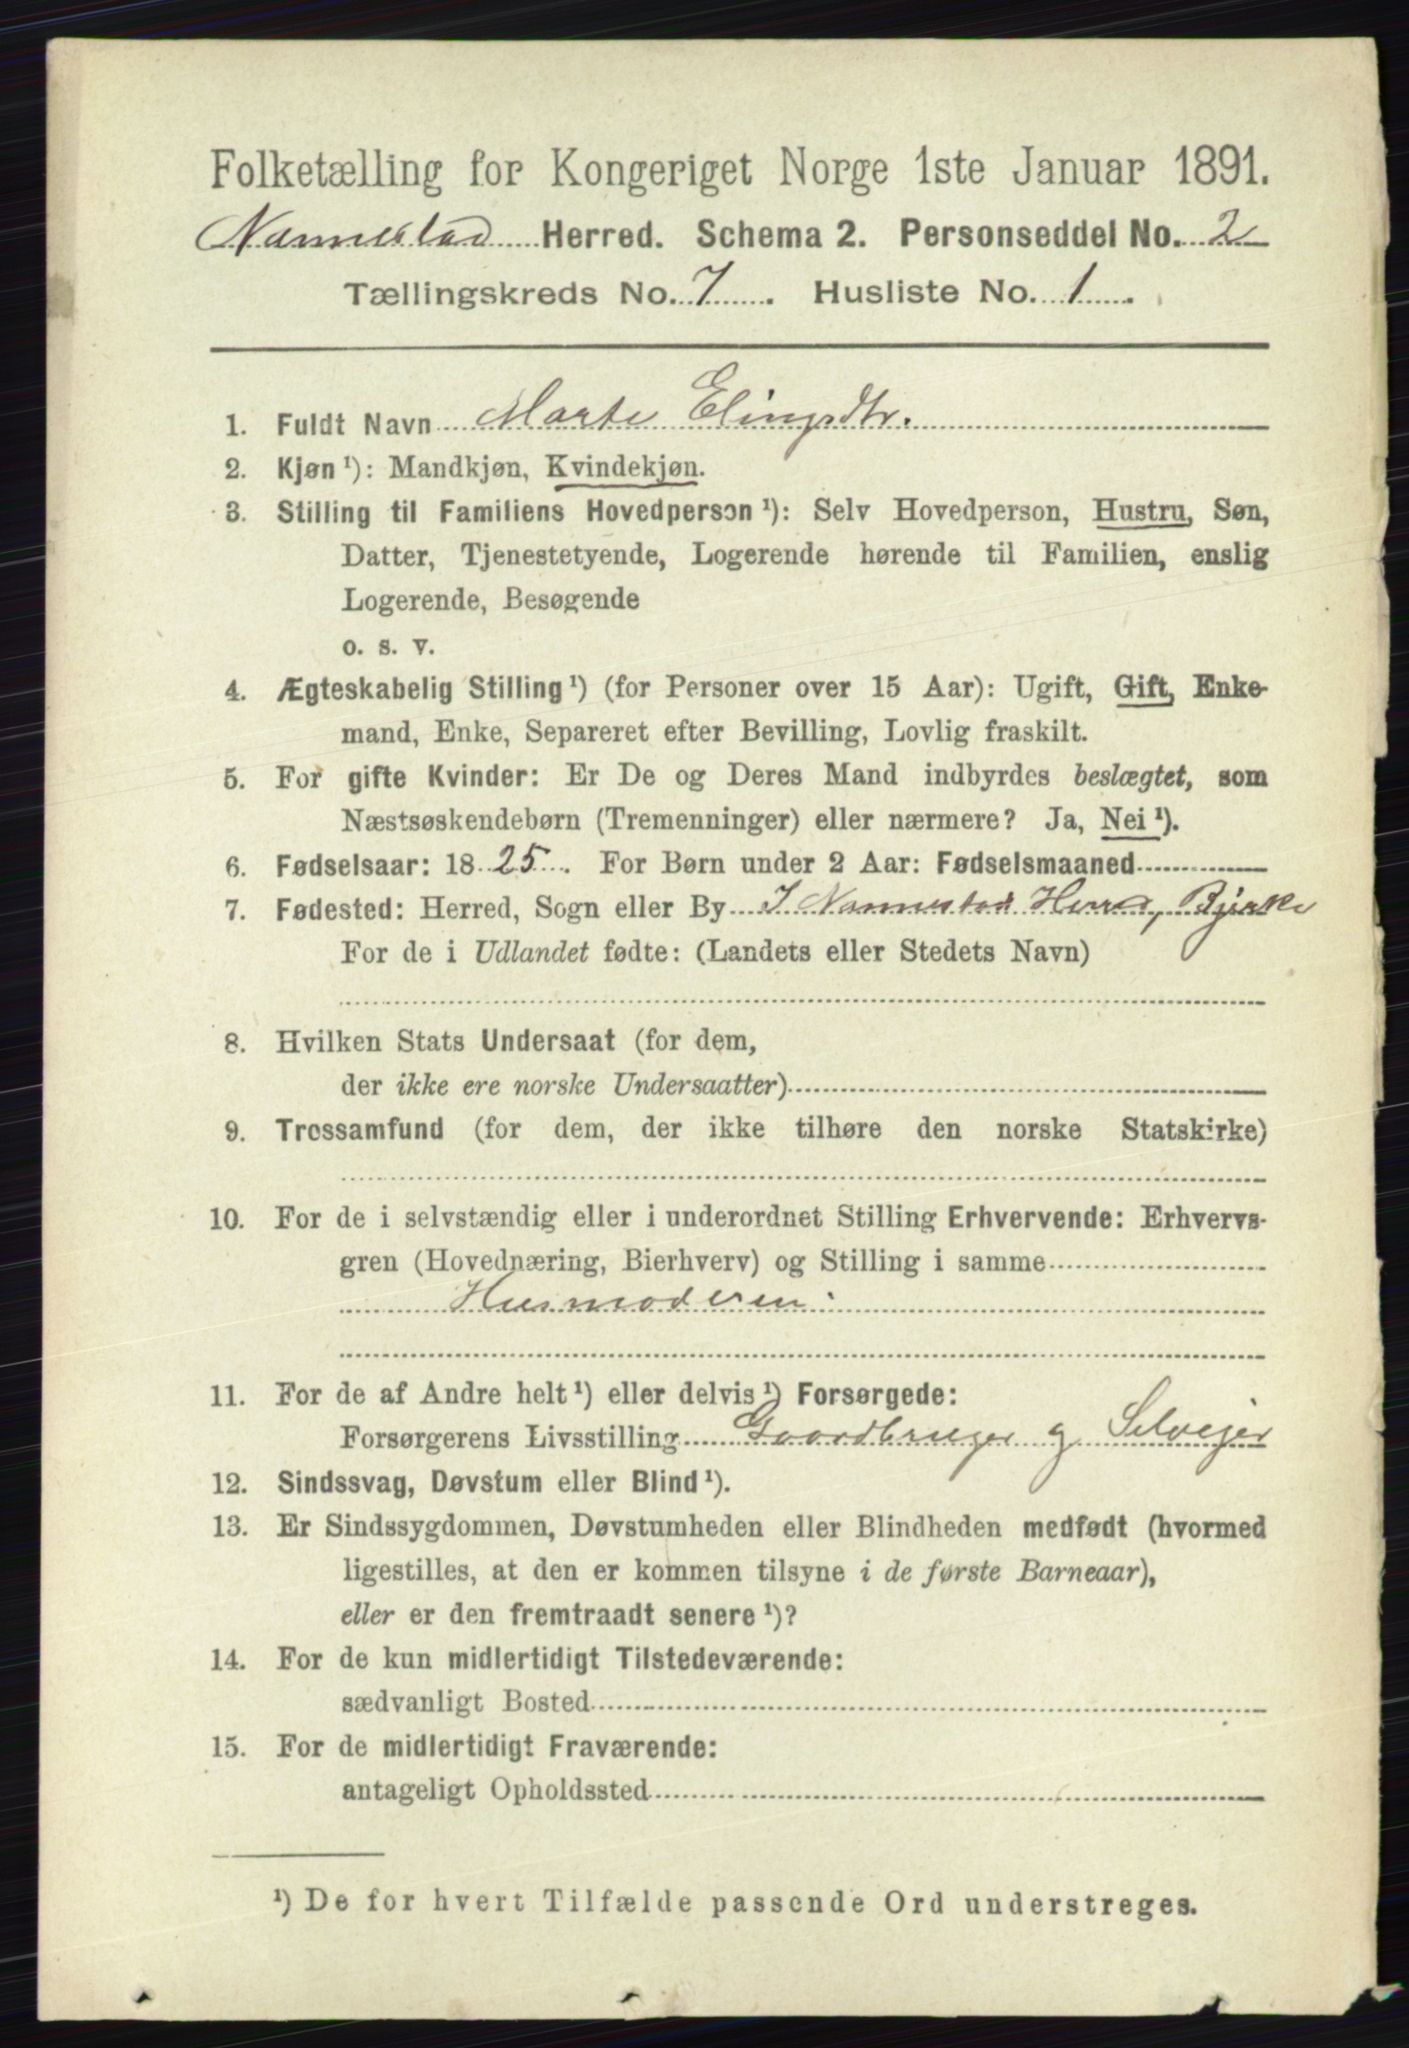 Folketælling for Kongeriget Norge 1ste Januar 1891.
Nannestad Herred. Schema 2. Personseddel No. 2
Tællingskreds No. 7. Husliste No. 1.
1. Fuldt Navn Marte Elingsdtr.
2. Kjøn ¹): Mandkjøn, Kvindekjøn.
3. Stilling til Familiens Hovedperson ¹): Selv Hovedperson, Hustru, Søn,
Datter, Tjenestetyende, Logerende hørende til Familien, enslig
Logerende, Besøgende
o. s. v.
4. Ægteskabelig Stilling ¹) (for Personer over 15 Aar): Ugift, Gift, Enke-
mand, Enke, Separeret efter Bevilling, Lovlig fraskilt.
5. For gifte Kvinder: Er De og Deres Mand indbyrdes beslægtet, som
Næstsøskendebørn (Tremenninger) eller nærmere? Ja, Nei ¹).
6. Fødselsaar: 1825. For Børn under 2 Aar: Fødselsmaaned
7. Fødested: Herred, Sogn eller By I Nannestad Herred, Bjerke
For de i Udlandet fødte: (Landets eller Stedets Navn)
8. Hvilken Stats Undersaat (for dem,
der ikke ere norske Undersaatter)
9. Trossamfund (for dem, der ikke tilhøre den norske Statskirke)
10. For de i selvstændig eller i underordnet Stilling Erhvervende: Erhvervs-
gren (Hovednæring, Bierhverv) og Stilling i samme
Husmoderen.
11. For de af Andre helt ¹) eller delvis ¹) Forsørgede:
Forsørgerens Livsstilling Gaardbruger og Selveier
12. Sindssvag, Døvstum eller Blind ¹).
13. Er Sindssygdommen, Døvstumheden eller Blindheden medfødt (hvormed
ligestilles, at den er kommen tilsyne i de første Barneaar),
eller er den fremtraadt senere ¹)?
14. For de kun midlertidigt Tilstedeværende:
sædvanligt Bosted
15. For de midlertidigt Fraværende:
antageligt Opholdssted
¹) De for hvert Tilfælde passende Ord understreges.